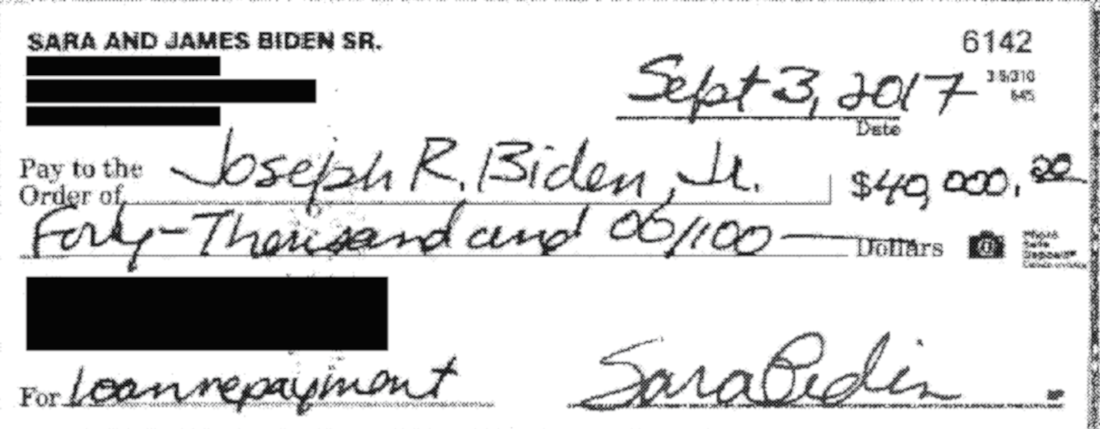 SARA AND JAMES BIDEN SR.
6142
Sept 3, 2017
Date
Pay to the
Order of
Joseph R. Biden, Jr.
$40,000.00
Forty-Thousand and 00/100
Dollars
For Loan repayment
Sara Biden